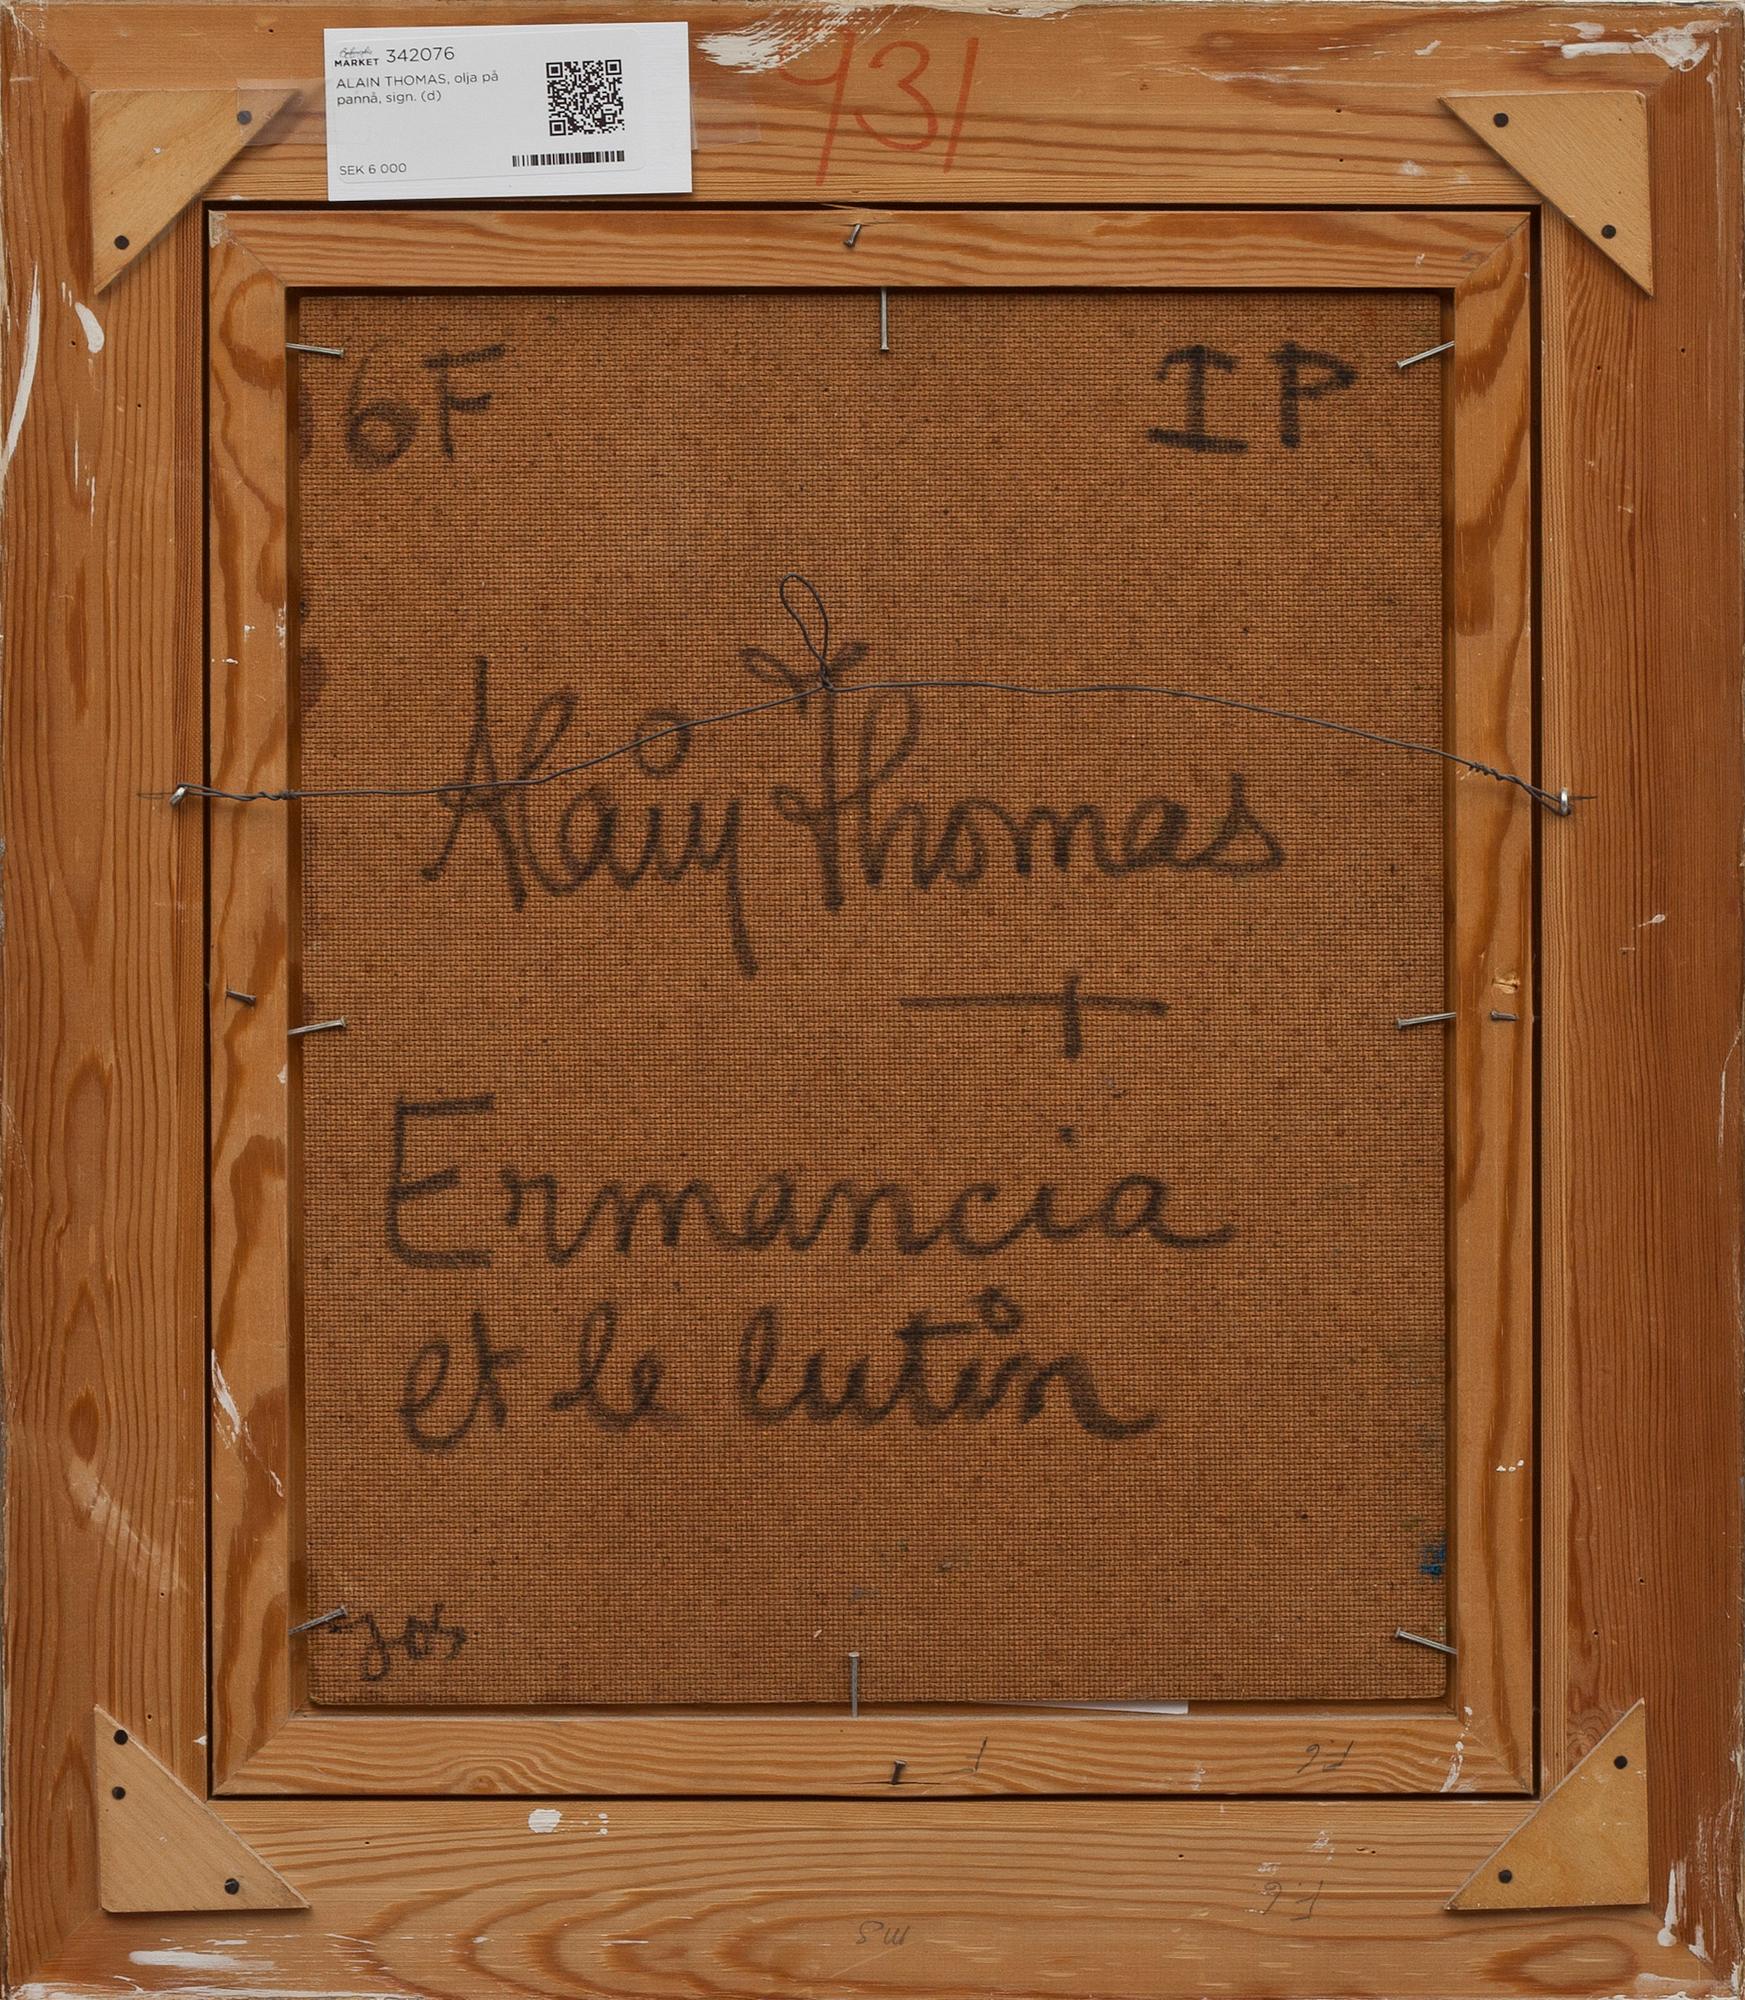 MARKET 342076
ALAIN THOMAS, olja på
pannå, sign. (d)
SEK 6 000
931
6F
IP
Alain Thomas
Ermancia
et le lutin
F.6
F.6